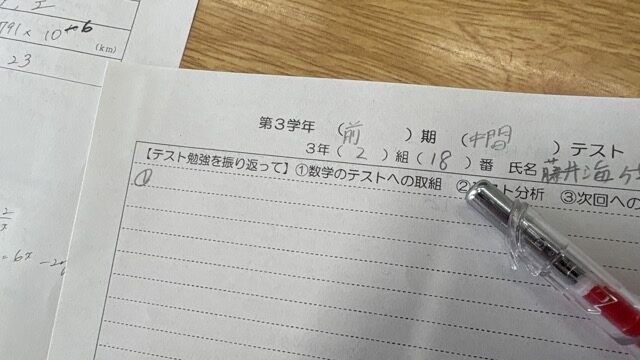 791×10⁻⁶
(km)
23
第3学年 (前 )期 (中間 )テスト
3年( 2 )組( 18 )番 氏名 藤井海
【テスト勉強を振り返って】①数学のテストへの取組 ②テスト分析 ③次回への
①